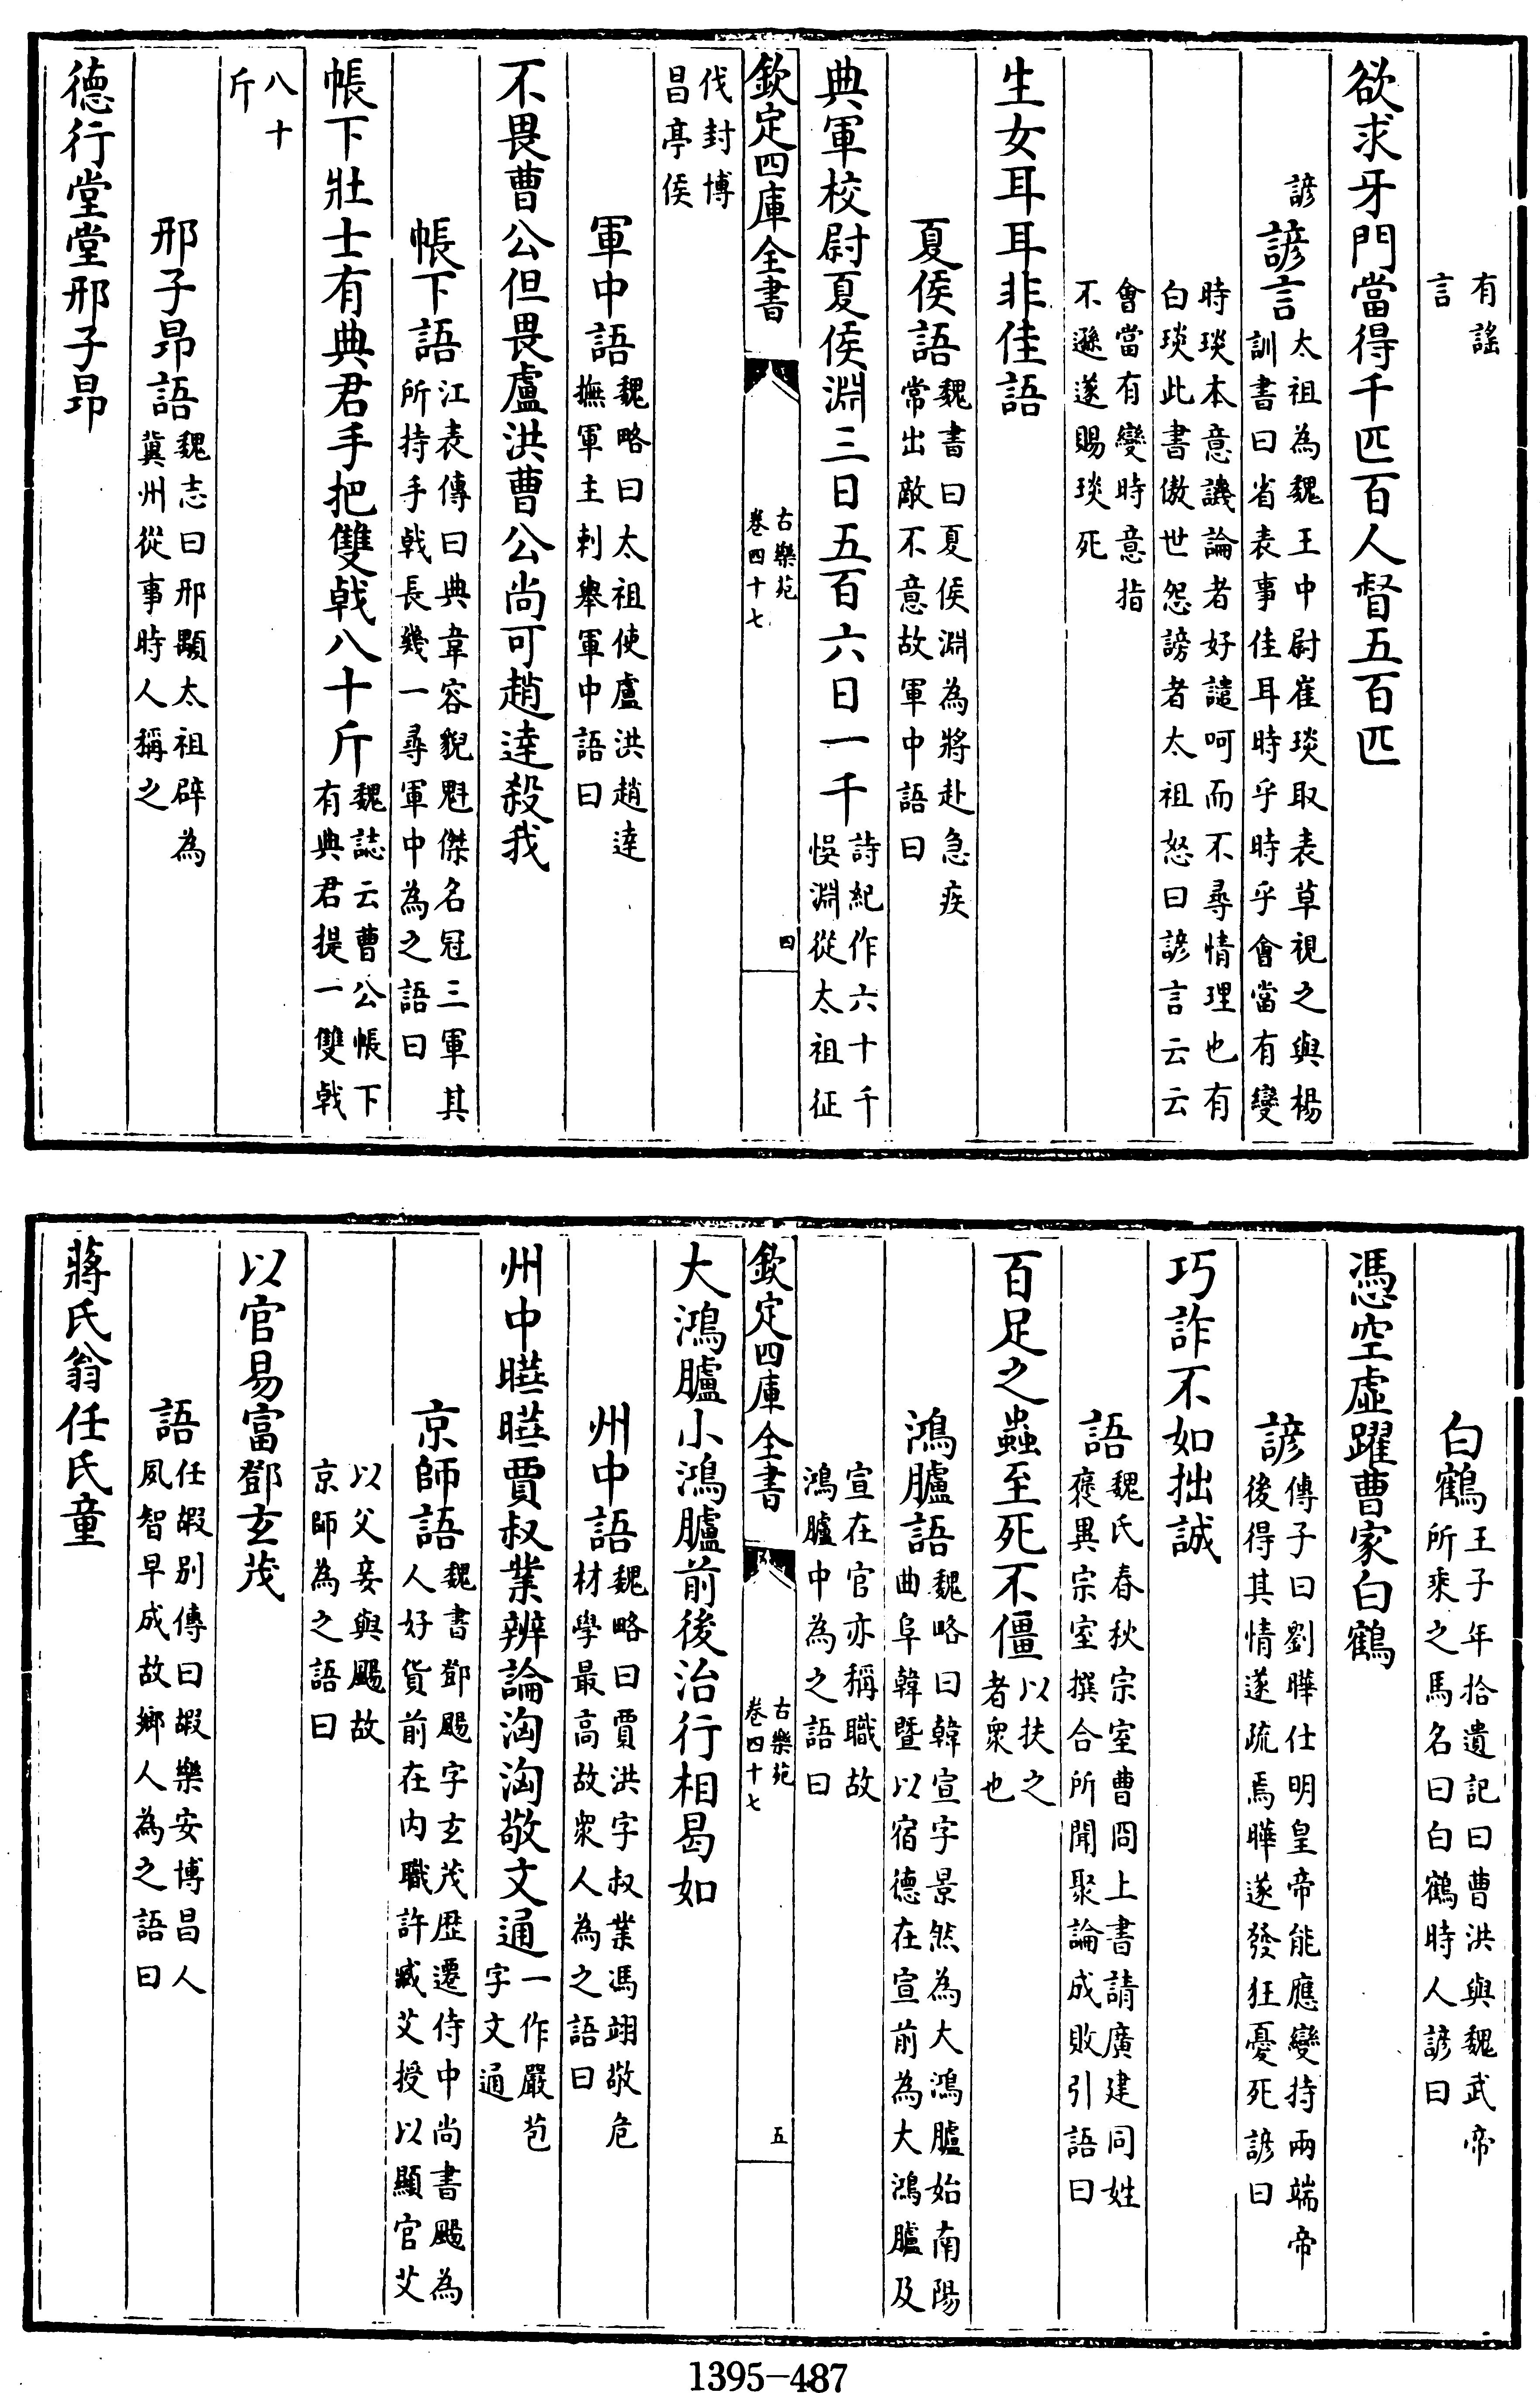 有謡
言
欲求牙門當得千匹百人督五百匹
諺
諺言
太祖為魏王中尉崔琰取表草視之與楊
訓書曰省表事佳耳時乎時乎會當有變
時琰本意譏論者好譴呵而不尋情理也有
白琰此書傲世怨謗者太祖怒曰諺言云云
會當有變時意指
不遜遂賜琰死
生女耳耳非佳語
夏侯語
魏書曰夏侯淵為將赴急疾
常出敵不意故軍中語曰
典軍校尉夏侯淵三日五百六日一千
詩紀作六十千
悞淵從太祖征
欽定四庫全書
古樂苑
卷四十七
四
伐封博
昌亭侯
軍中語
魏略曰太祖使盧洪趙達
撫軍主刺舉軍中語曰
不畏曹公但畏盧洪曹公尚可趙達殺我
帳下語
江表傳曰典韋容貌魁傑名冠三軍其
所持手戟長幾一尋軍中為之語曰
帳下壯士有典君手把雙戟八十斤
魏誌云曹公帳下
有典君提一雙戟
八十
斤
邢子昂語
魏志曰邢顒太祖辟為
冀州從事時人稱之
德行堂堂邢子昂
白鶴
王子年拾遺記曰曹洪與魏武帝
所乘之馬名曰白鶴時人諺曰
憑空虛躍曹家白鶴
諺
傅子曰劉曄仕明皇帝能應變持兩端帝
後得其情遂疏焉曄遂發狂憂死諺曰
巧詐不如拙誠
語
魏氏春秋宗室曹冏上書請廣建同姓
褒異宗室撰合所聞聚論成敗引語曰
百足之蟲至死不僵
以扶之
者衆也
鴻臚語
魏略曰韓宣字景然為大鴻臚始南陽
曲阜韓暨以宿德在宣前為大鴻臚及
宣在官亦稱職故
鴻臚中為之語曰
欽定四庫全書
古樂苑
卷四十七
五
大鴻臚小鴻臚前後治行相曷如
州中語
魏略曰賈洪字叔業馮翊敬危
材學最高故衆人為之語曰
州中曅曅賈叔業辨論洶洶敬文通
一作嚴苞
字文通
京師語
魏書鄧颺字玄茂歷遷侍中尚書颺為
人好貨前在内職許臧艾授以顯官艾
以父妾與颺故
京師為之語曰
以官易富鄧玄茂
語
任嘏别傳曰嘏樂安博昌人
夙智早成故鄉人為之語曰
蔣氏翁任氏童
1395-487